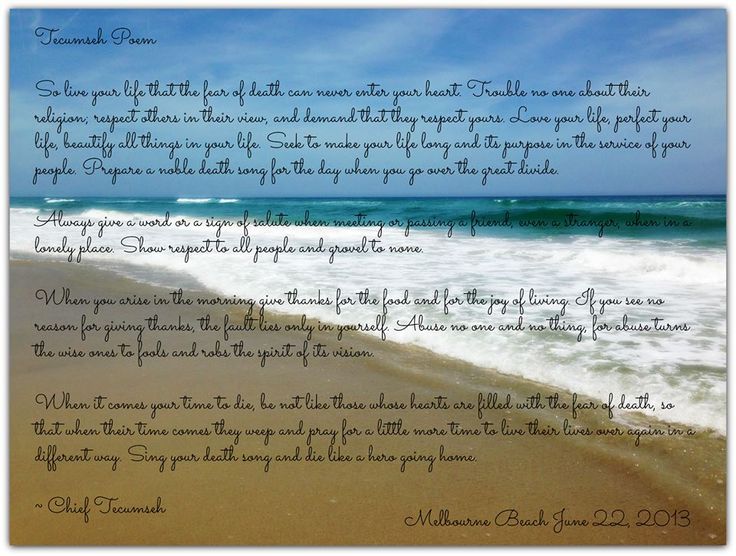 Tecumseh Poem
So live your life that the fear of death can never enter your heart. Trouble no one about their
religion; respect others in their view, and demand that they respect yours. Love your life, perfect your
life, beautify all things in your life. Seek to make your life long and its purpose in the service of your
people. Prepare a noble death song for the day when you go over the great divide.
Always give a word or a sign of salute when meeting or passing a friend, even a stranger, when in a
lonely place. Show respect to all people and grovel to none.
When you arise in the morning give thanks for the food and for the joy of living. If you see no
reason for giving thanks, the fault lies only in yourself. Abuse no one and no thing, for abuse turns
the wise ones to fools and robs the spirit of its vision.
When it comes your time to die, be not like those whose hearts are filled with the fear of death, so
that when their time comes they weep and pray for a little more time to live their lives over again in a
different way. Sing your death song and die like a hero going home.
~ Chief Tecumseh
Melbourne Beach June 22, 2013